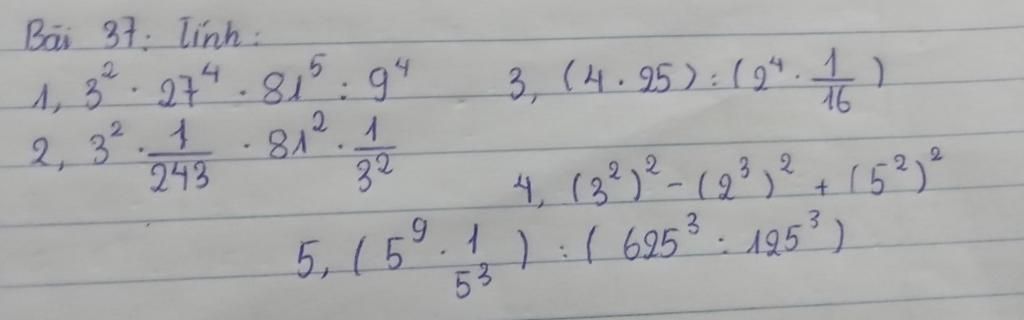 Bài 37: Tính:
1, 3² · 27⁴ · 81⁵ : 9⁴
3, (4 · 25) : (2⁴ · 1/16)
2, 3² · 1/243 · 81² · 1/3²
4, (3²)² - (2³)² + (5²)²
5, (5⁹ · 1/5³) : (625³ : 125³)